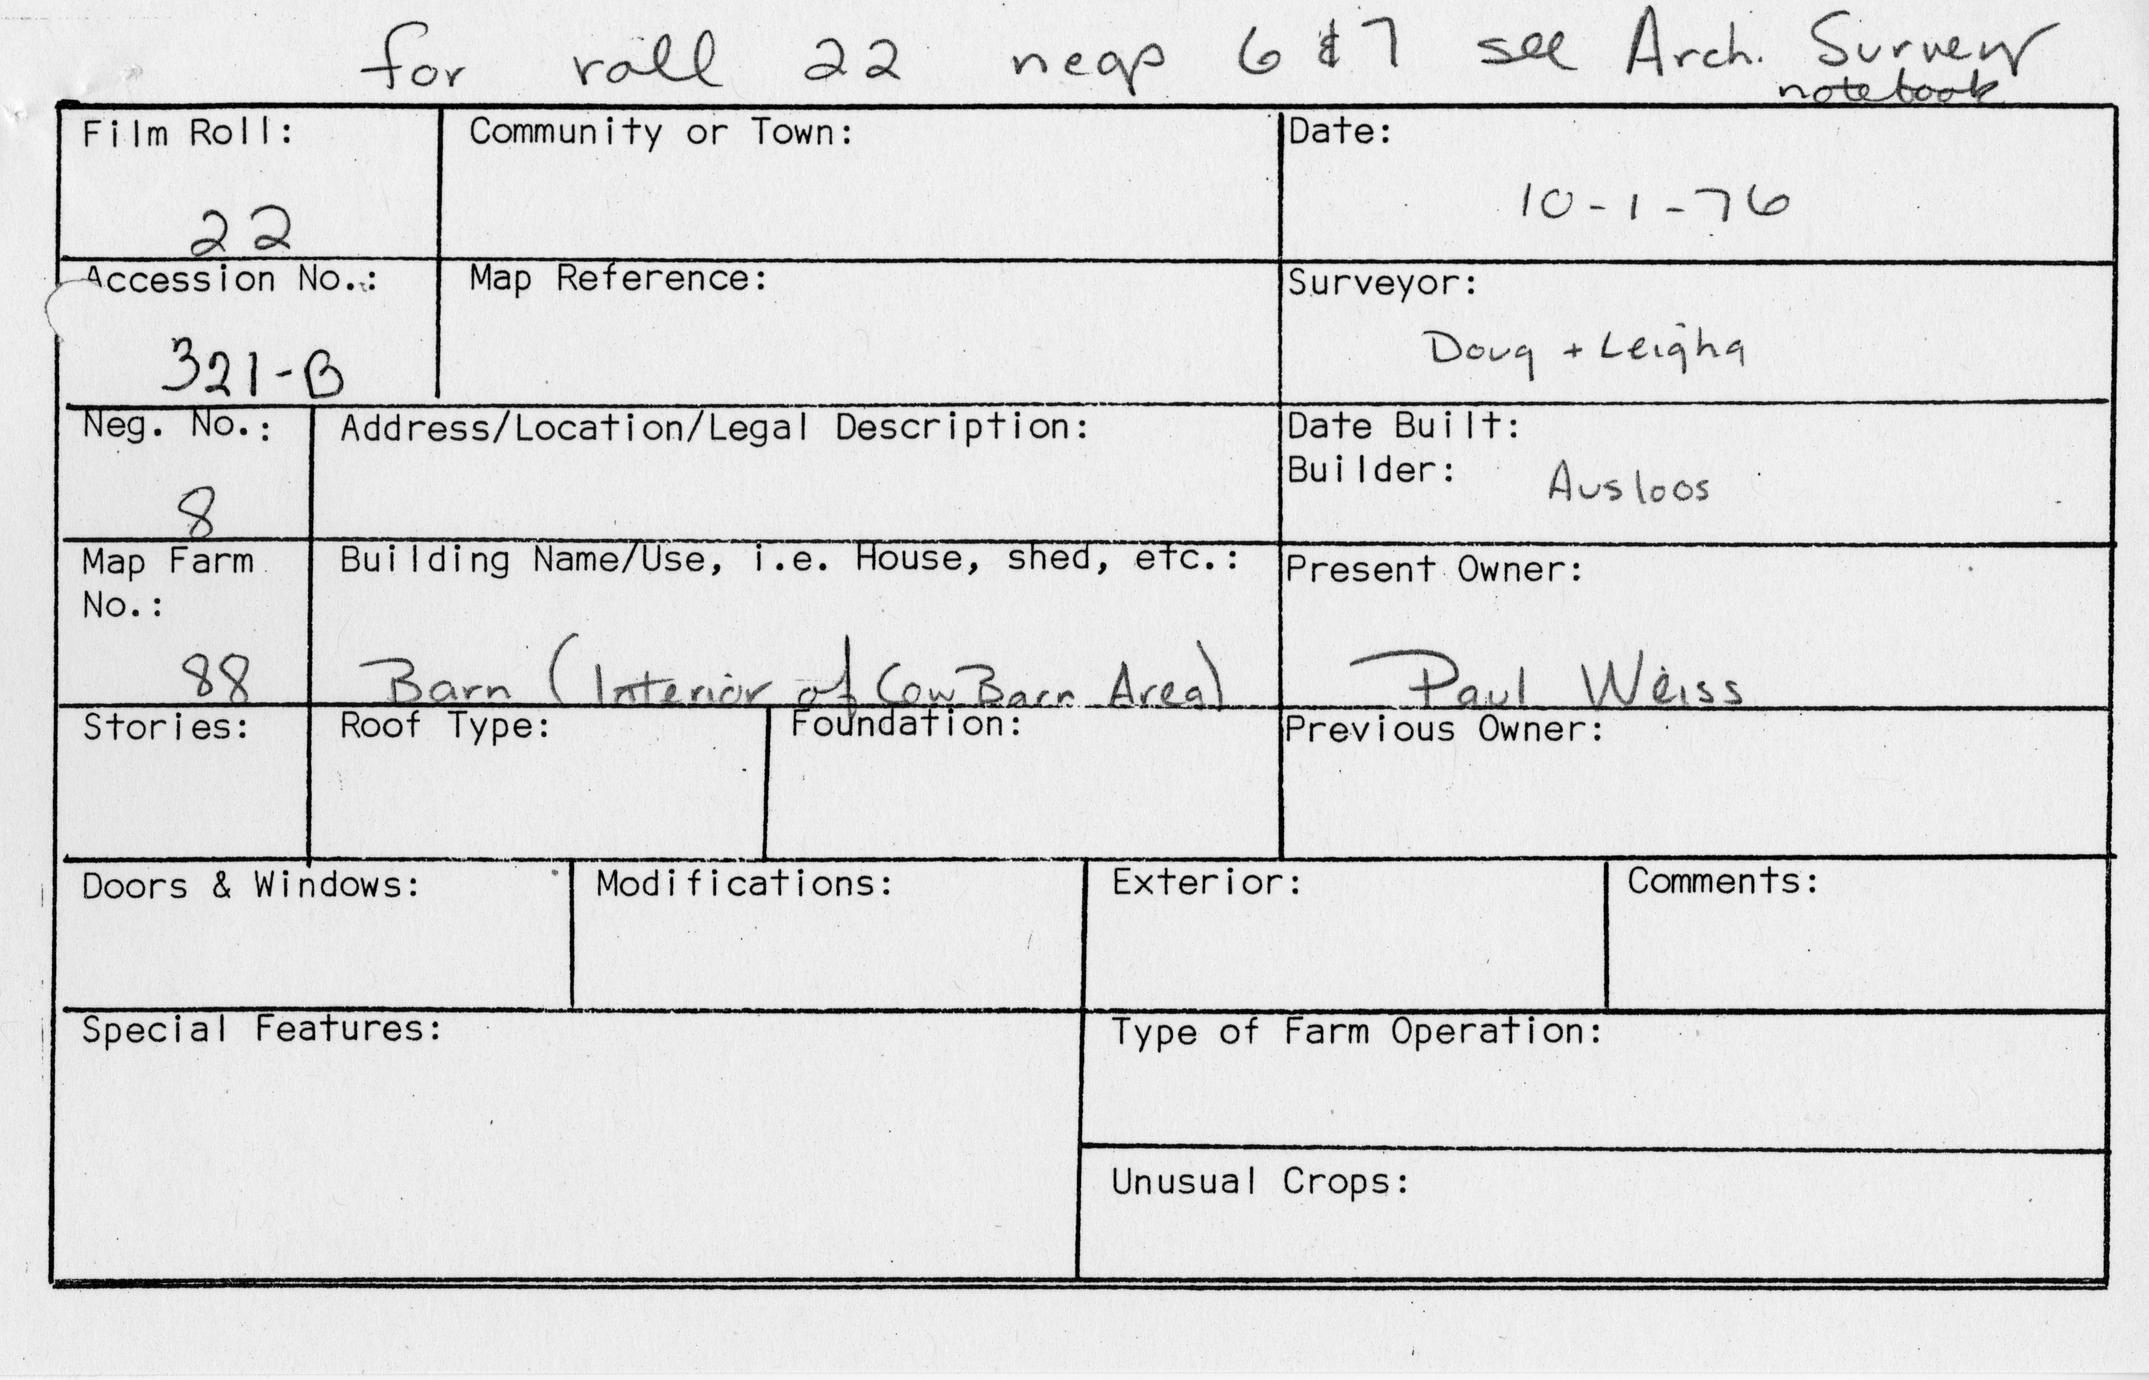 for roll 22 negs 6 & 7 see Arch. Survey
notebook
Film Roll:
22
Community or Town:
Date:
10-1-76
Accession No.:
321-B
Map Reference:
Surveyor:
Doug + Leigha
Neg. No.:
8
Address/Location/Legal Description:
Date Built:
Builder: Ausloos
Map Farm
No.:
88
Building Name/Use, i.e. House, shed, etc.:
Barn (Interior of Cow Barn Area)
Present Owner:
Paul Weiss
Stories:
Roof Type:
Foundation:
Previous Owner:
Doors & Windows:
Modifications:
Exterior:
Comments:
Special Features:
Type of Farm Operation:
Unusual Crops: